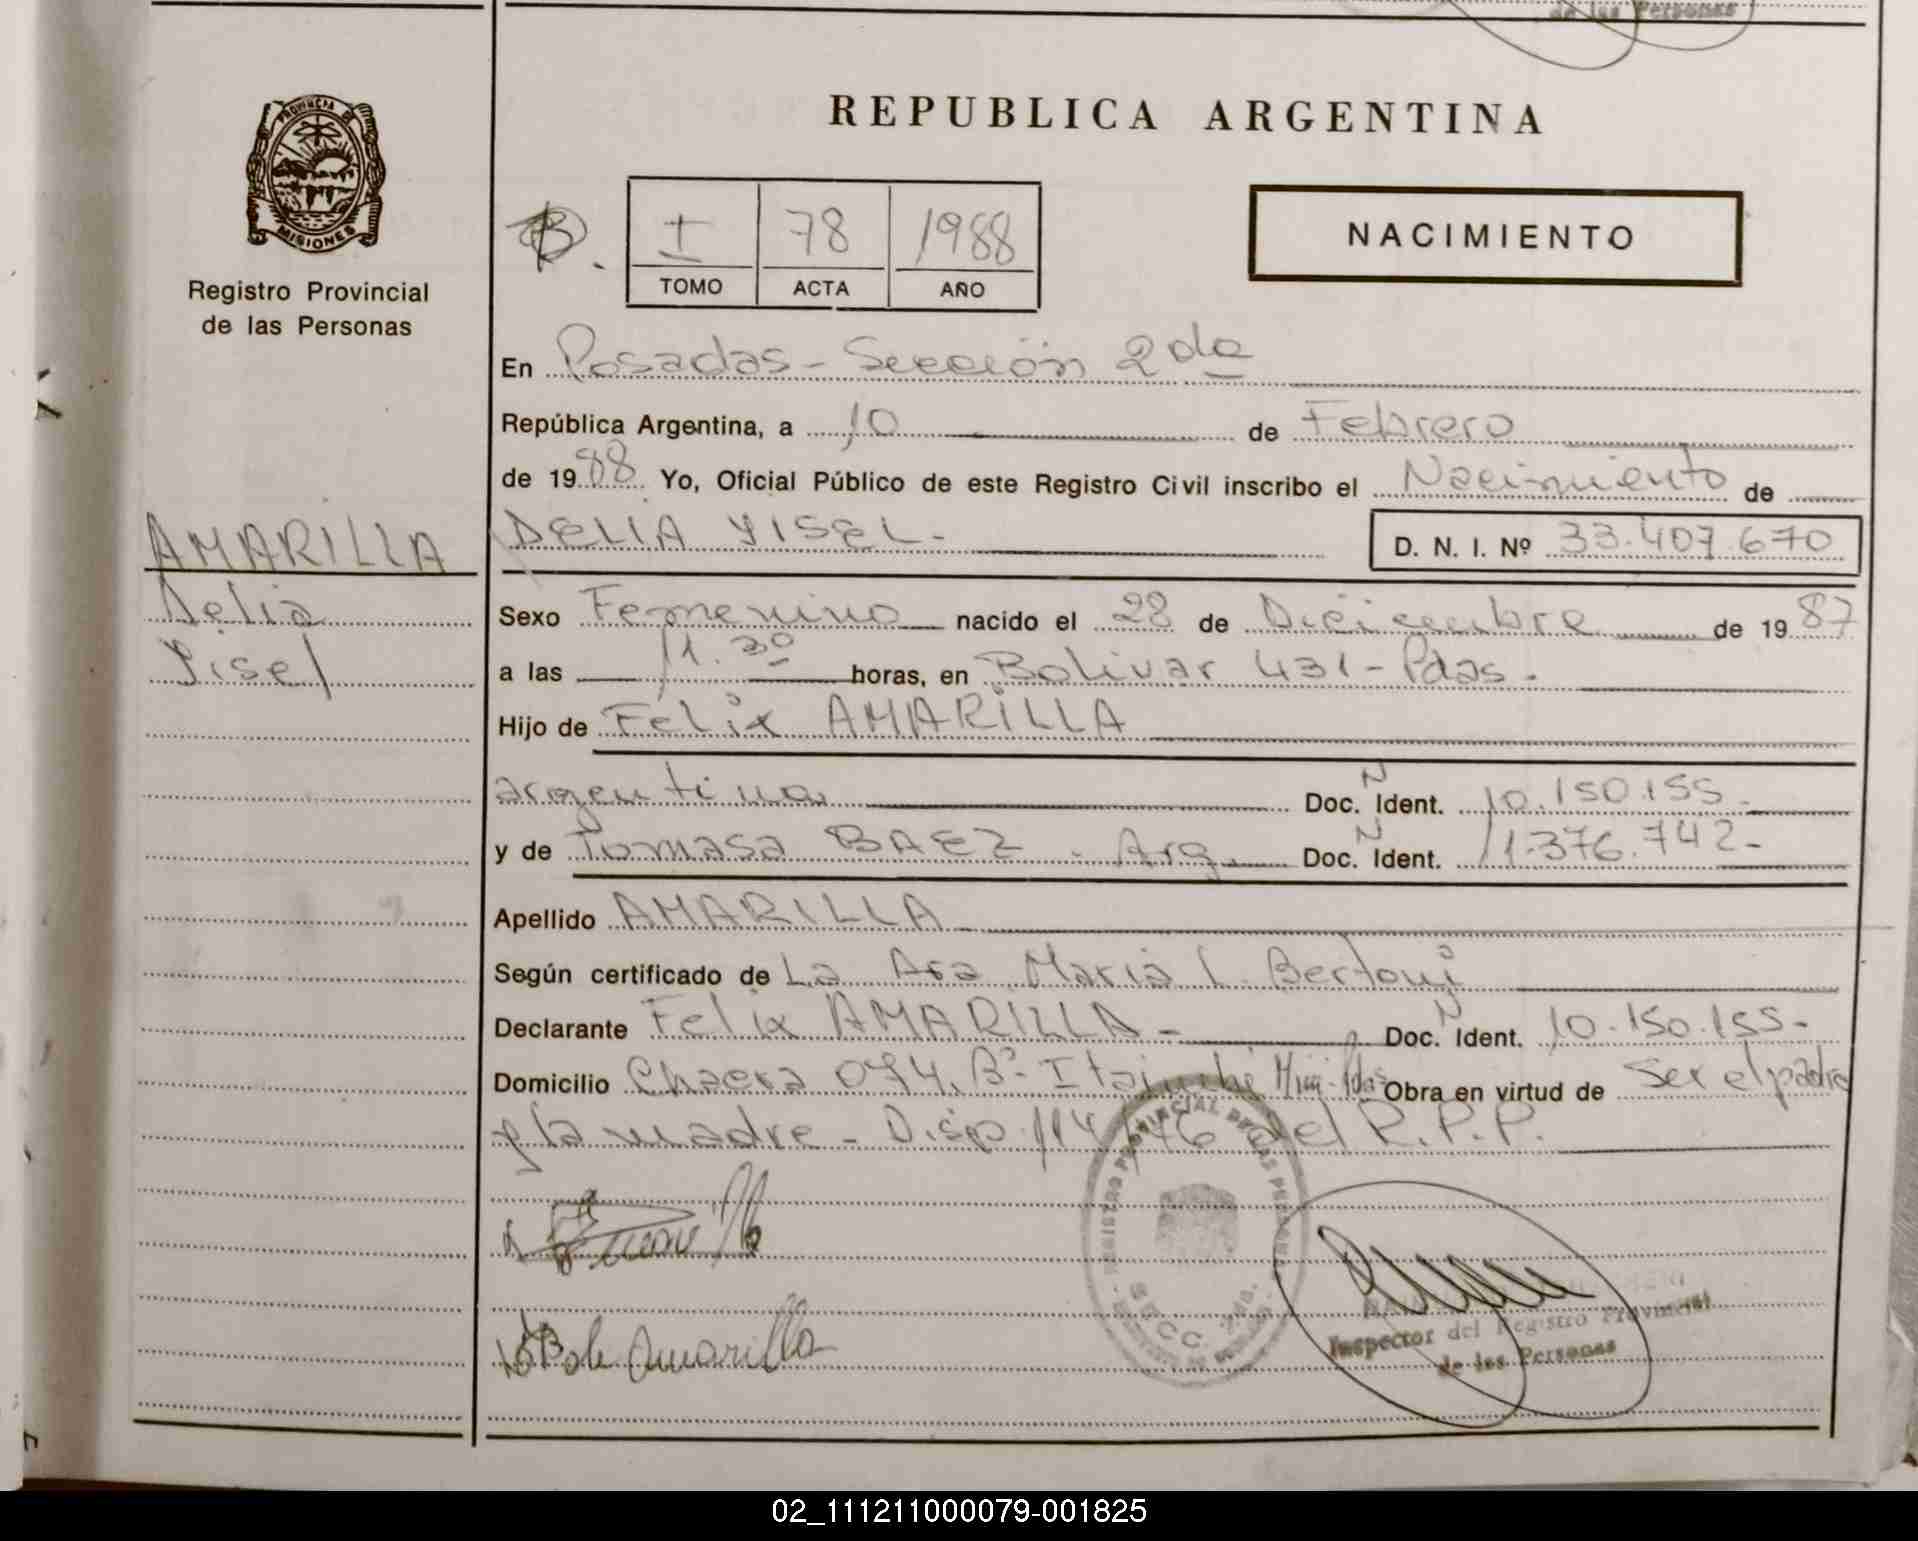 de las Personas
REPUBLICA ARGENTINA
PROVINCIA DE
MISIONES
Registro Provincial
de las Personas
B.
I 78 1988
TOMO ACTA AÑO
NACIMIENTO
En Posadas - Sección 2da
República Argentina, a 10 de Febrero
de 1988 Yo, Oficial Público de este Registro Civil inscribo el Nacimiento de
AMARILLA
Delia
Yisel
DELIA YISEL.- D. N. I. Nº 33.407.670
Sexo Femenino nacido el 28 de Diciembre de 1987
a las 11.30 horas, en Bolivar 431 - Pdas.
Hijo de Felix AMARILLA
argentina Doc. N Ident. 10.150.155.-
y de Tomasa BAEZ . Arg. Doc. N Ident. 11.376.742-
Apellido AMARILLA
Según certificado de La Maria Bertoni
Declarante Felix AMARILLA - Doc. N Ident. 10.150.155-
Domicilio Chacra 074. Bº Itaimbé Mini-Pdas Obra en virtud de ser el padre
y la madre - Disp. 114/76 del R.P.P.
REGISTRO PROVINCIAL DE LAS PERSONAS
SECC. 2da.
Amarilla
Inspector del Registro Provincial
de las Personas
02_111211000079-001825